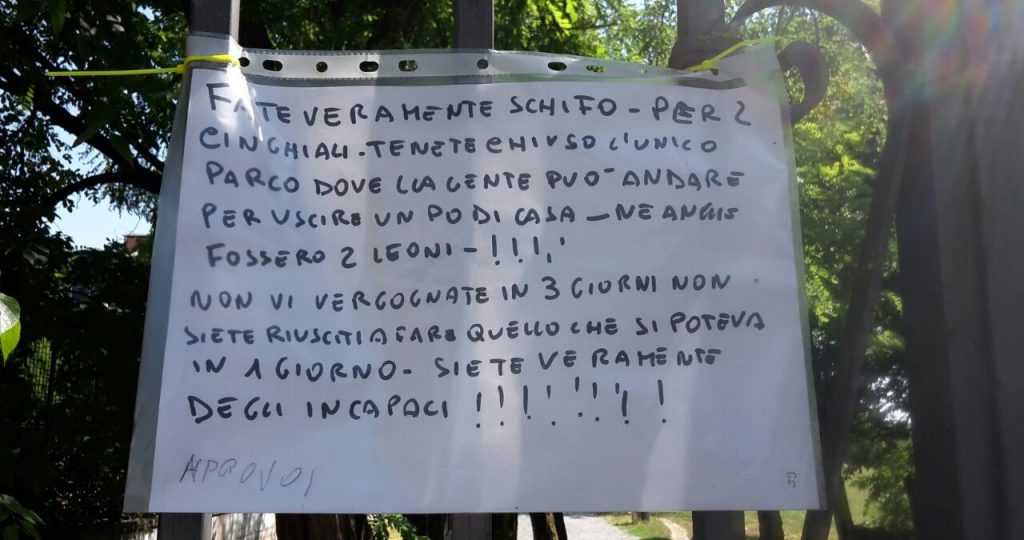 FATE VERAMENTE SCHIFO - PER 2
CINGHIALI - TENETE CHIUSO L'UNICO
PARCO DOVE LLA GENTE PUO' ANDARE
PER USCIRE UN PO DI CASA - NE ANCHE
FOSSERO 2 LEONI - !!!!
NON VI VERGOGNATE IN 3 GIORNI NON
SIETE RIUSCITI A FARE QUELLO CHE SI POTEVA
IN 1 GIORNO - SIETE VERAMENTE
DEGLI INCAPACI !!!!!!!!